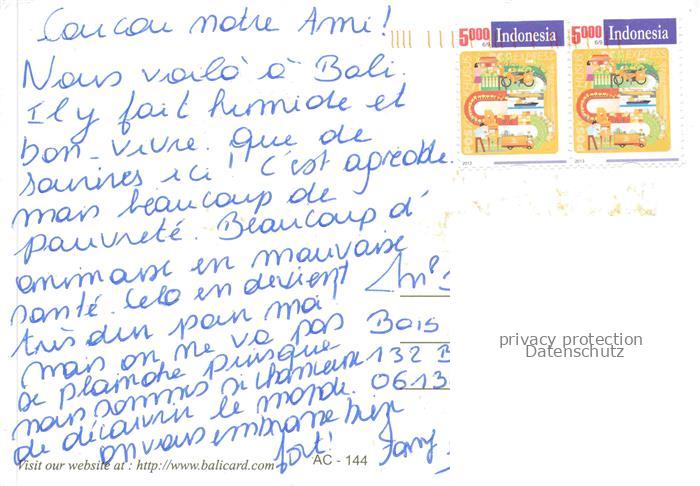 Coucou notre Ami!
Nous voilà à Bali.
Il y fait humide et
bon-vivre. Que de
sourires ici! C'est agréable
mais beaucoup de
pauvreté. Beaucoup d'
animaux en mauvaise
santé. Cela en devient
très dur pour moi
mais on ne va pas
se plaindre puisque
nous sommes si chanceux
de découvrir le monde.
on vous embrasse bien
fort!
5000 Indonesia
6/9
2013
5000 Indonesia
6/9
2013
Bois
132 B
0613
privacy protection
Datenschutz
Visit our website at : http://www.balicard.com
AC - 144